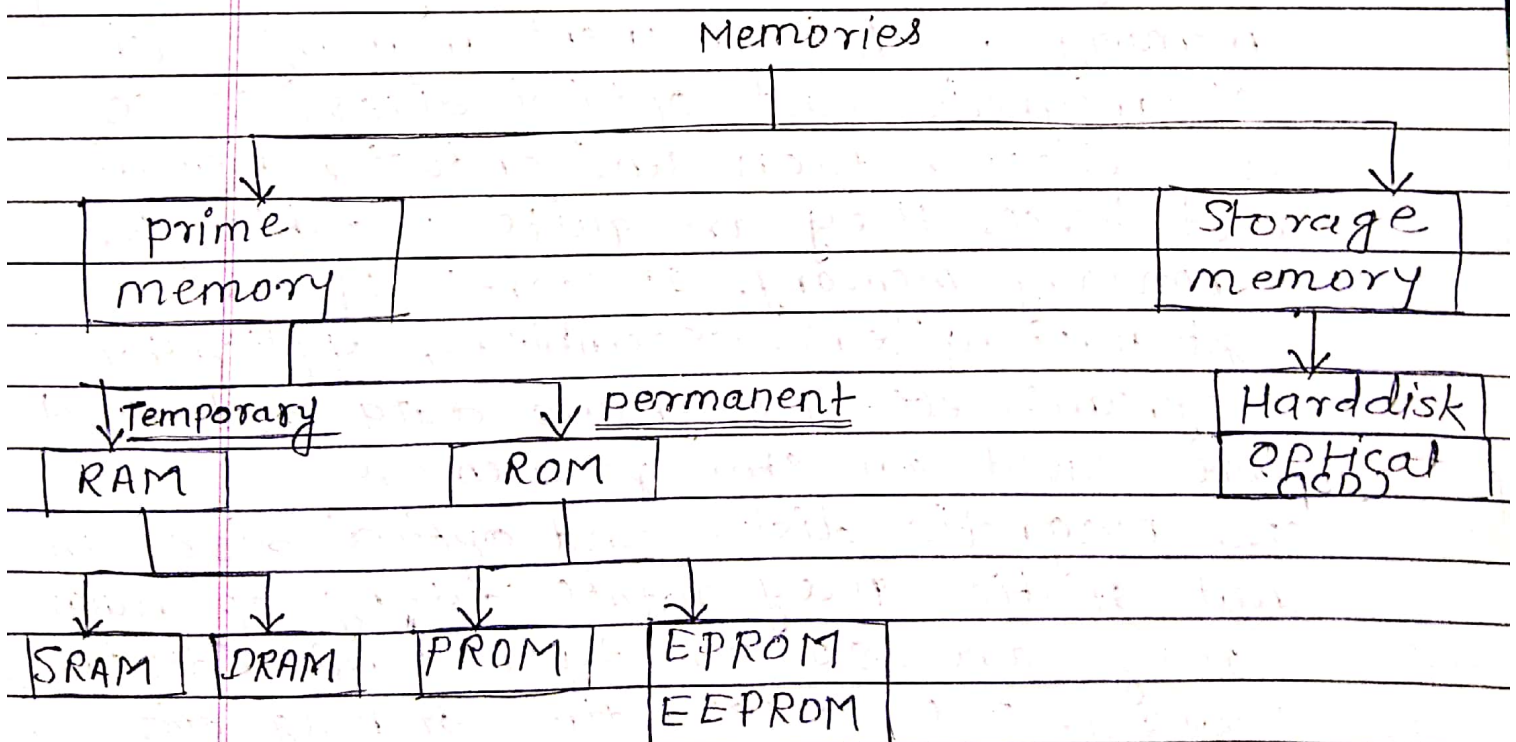 Memories
prime
memory
Storage
memory
Temporary
permanent
Harddisk
Optical
RAM
ROM
SRAM
DRAM
PROM
EPROM
EEPROM